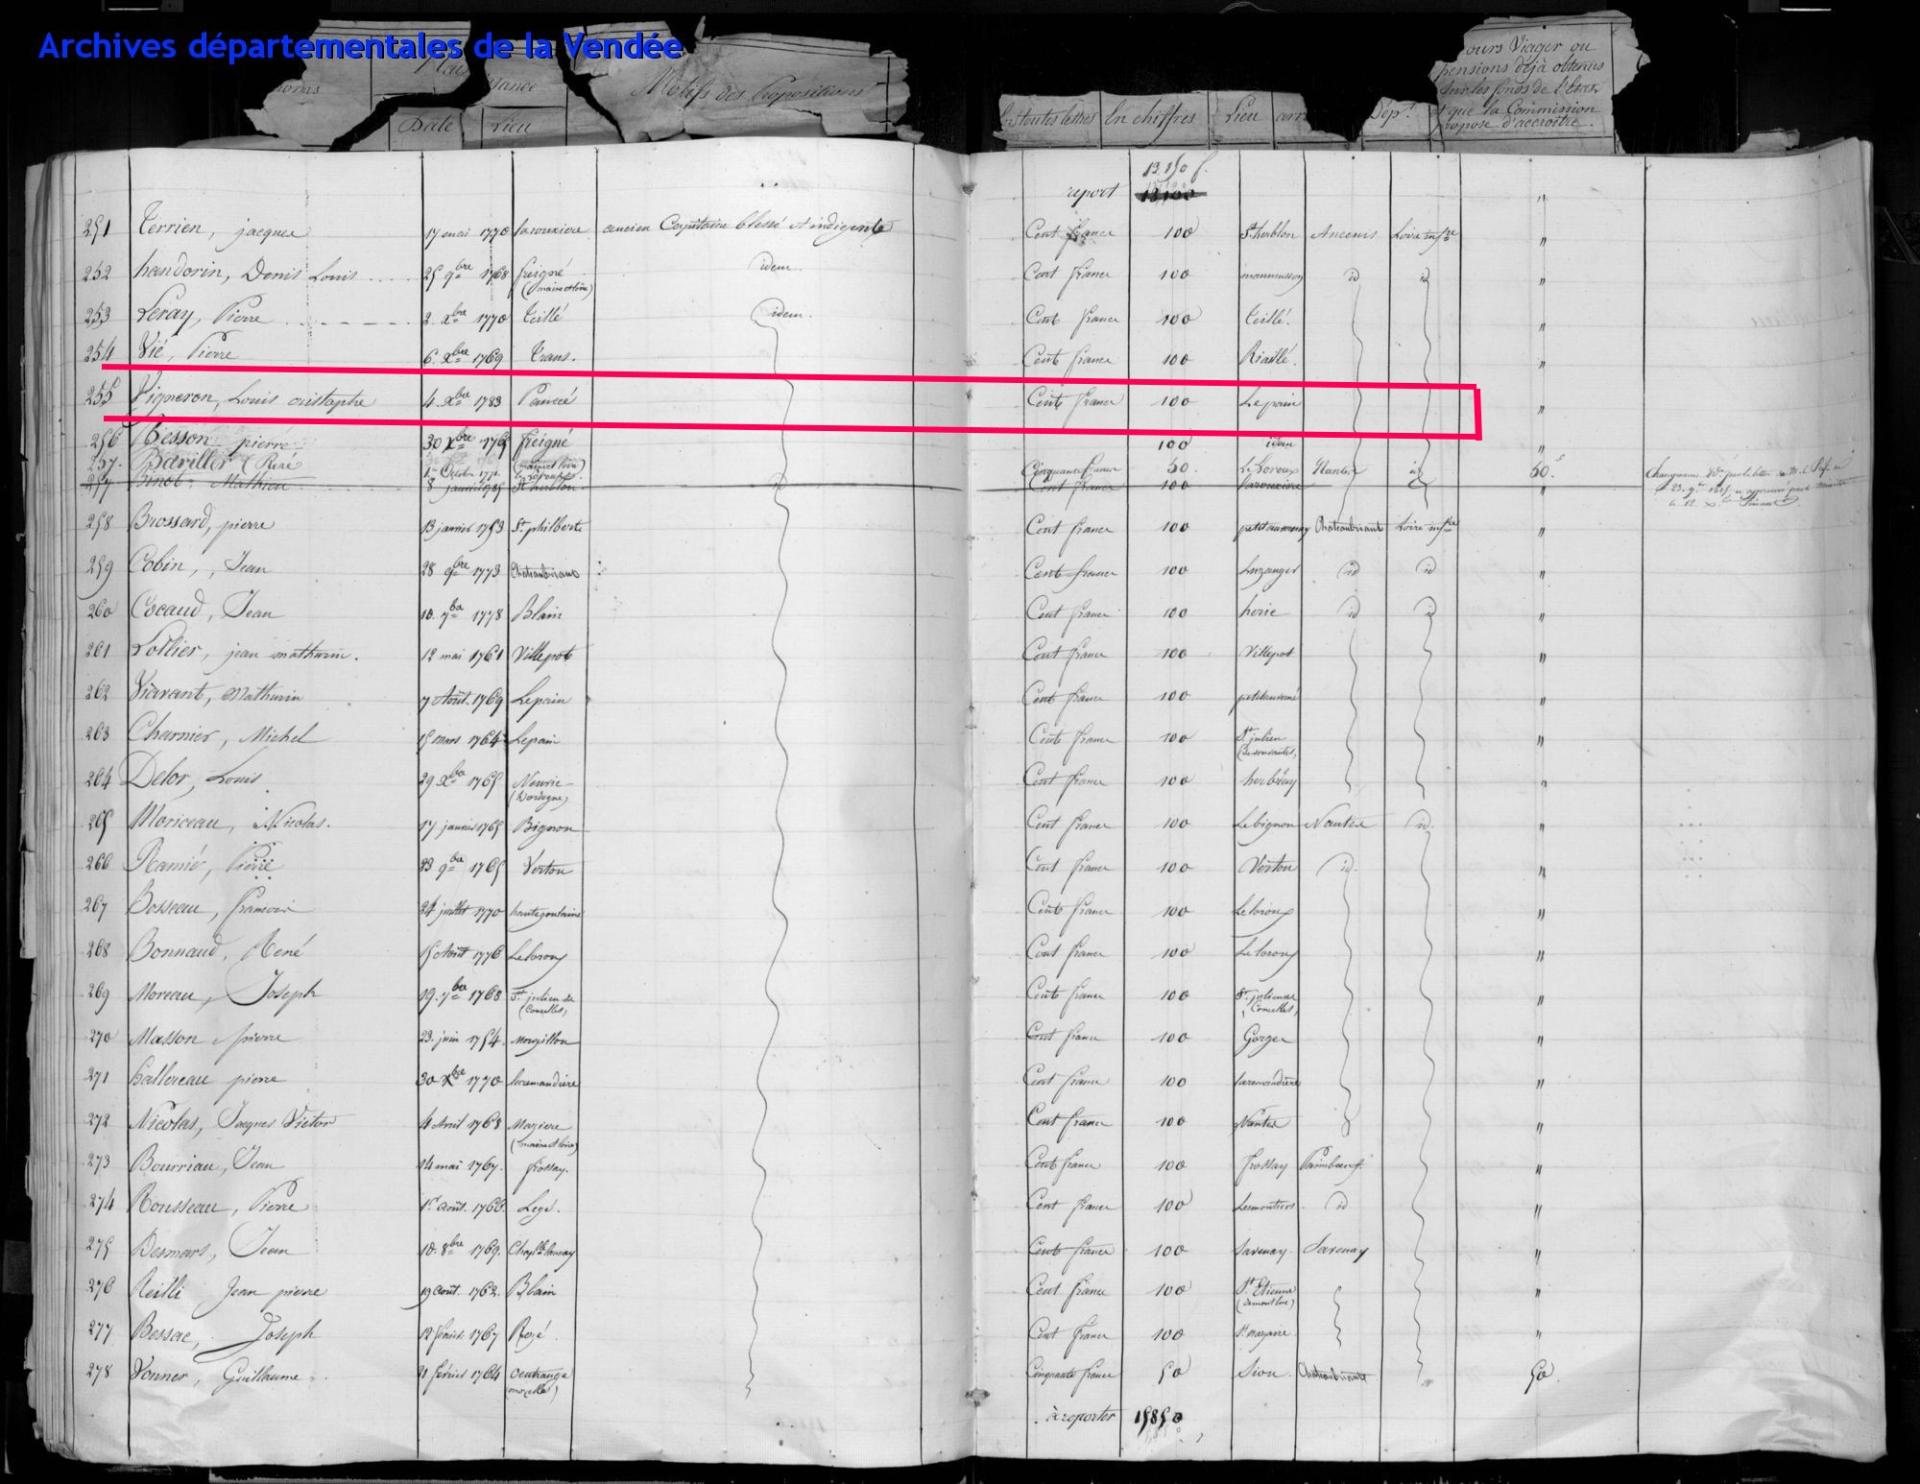 Archives départementales de la Vendée
Motifs des Propositions
Date Lieu
En toutes lettres En chiffres Lieu Dép.t
ours Viager ou
pensions déjà obtenus
sur les fonds de l'Etat
et que la Commission
propose d'accroître.
13,150 f.
report 13,100
251 Terrien, jacques 17 mai 1770 ancien Capitaine blessé et indigent Cent francs 100 St herblon Ancenis Loire infre "
252 Denis Louis 25 9bre 1768 freigné (maine et loire) idem Cent francs 100 id id "
253 Leray, Pierre 2 Xbre 1770 Teillé idem. Cent francs 100 Teillé. "
254 Vié, Pierre 6 Xbre 1769 Trans. Cent francs 100 Riaillé. "
255 Vigneron, Louis cristophe 4 Xbre 1783 Pannecé Cent francs 100 Le pain "
256 Besson pierre 30 Xbre freigné 100 idem "
257. René Cinquante francs 50. Le Loroux Nantes id 50.
257 Binot Mathieu 8 janvier Cent francs 100
258 Brossard, pierre 13 janvier 1753 St philberts Cent francs 100 Chateaubriant Loire infre "
259 Cobin, Jean 28 9bre 1773 Chateaubriand Cent francs 100 Luzanger id id "
260 Cocaud, Jean 10. 7bre 1778 Blain Cent francs 100 id id "
261 Lollier, jean mathurin. 12 mai 1761 Villepot Cent francs 100 Villepot "
262 Viavant, Mathurin 7 Août 1769 Lepain Cent francs 100 "
263 Charnier, Michel 15 mars 1764 Lepain Cent francs 100 St julien "
264 Delor, Louis 29 Xbre 1765 (Dordogne) Cent francs 100 "
265 Moriceau, Nicolas. 17 janvier 1765 Bignon Cent francs 100 Le bignon Nantes id "
266 Ramié, Pierre 23 9bre 1765 Verton Cent francs 100 Verton id. "
267 Bosseau, francois 24 juillet 1770 hautegoulaine Cent francs 100 Le loroux "
268 Bonnaud, René 15 Août 1776 Le loroux Cent francs 100 Le loroux "
269 Moreau, Joseph 19. 7bre 1768 St julien de (Concelles) Cent francs 100 St julien de (Concelles) "
270 Masson pierre 23. juin 1754 mouzillon Cent francs 100 Gorges "
271 pierre 30 Xbre 1770 Cent francs 100 "
272 Nicolas, Jacques Victor 4 Avril 1768 Maziere (maine et loire) Cent francs 100 Nantes "
273 Bourriau, Jean 14 mai 1767. frossay. Cent francs 100 frossay Paimboeuf "
274 Rousseau, Pierre 1er août. 1766 Legé. Cent francs 100 Lesmoutiers id "
275 Besmars, Jean 10. 8bre 1769. Cent francs 100 Savenay Savenay "
276 Reilli Jean pierre 19 août. 1762. Blain Cent francs 100 St Etienne (demontluc) "
277 Bessac, Joseph 12 février 1767 Rezé. Cent francs 100 St nazaire "
278 Vonner, Guillaume 21 février 1764 (moselle) Cinquante francs 50 Sion Chateaubriant 50
à reporter 15850